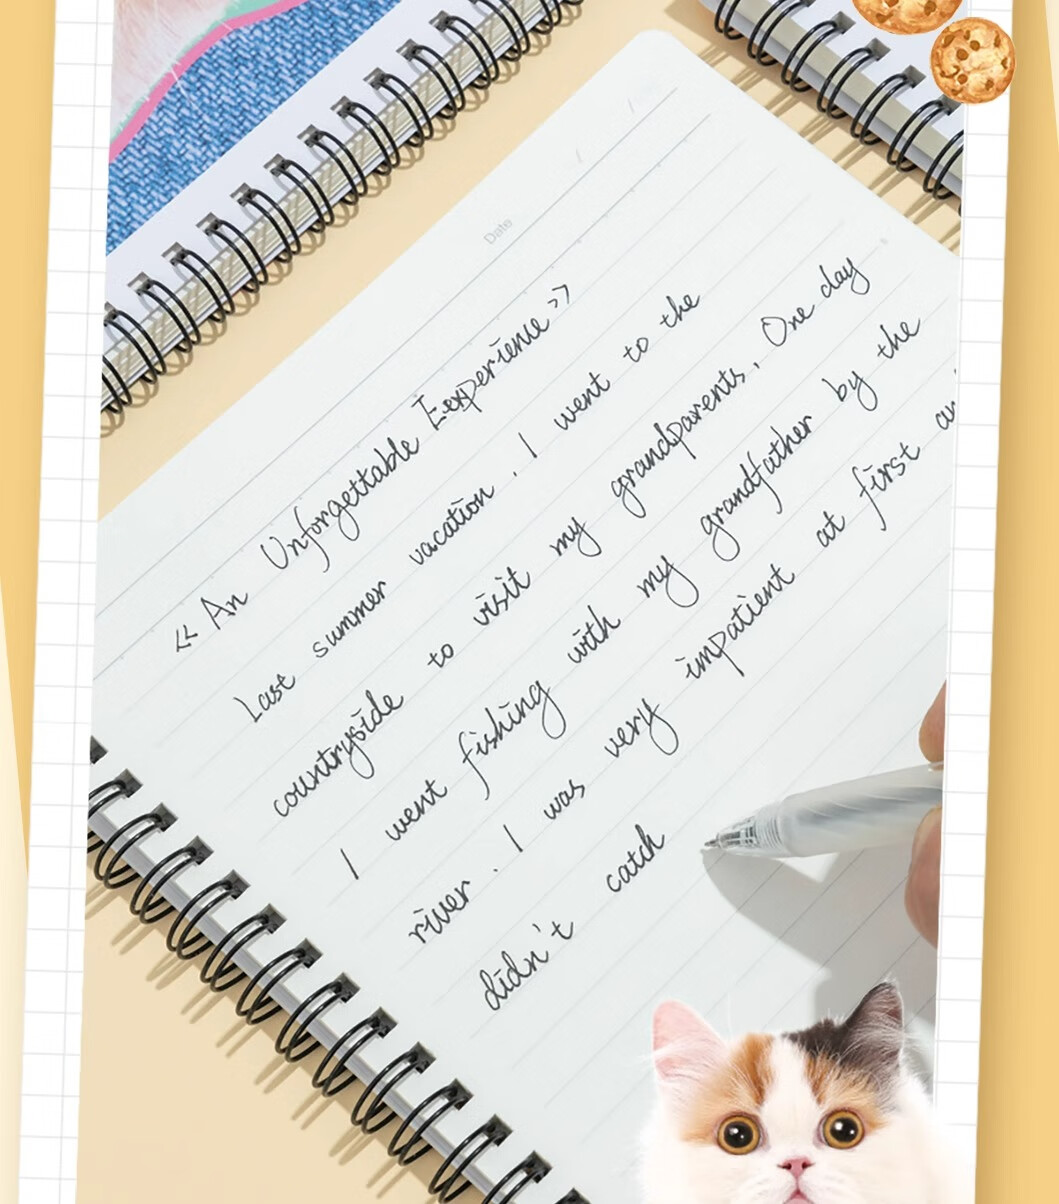 Date
/ /
« An Unforgettable Eexperience »
Last summer vacation , I went to the
countryside to visit my grandparents. One day
I went fishing with my grandfather by the
river . I was very impatient at first
didn't catch